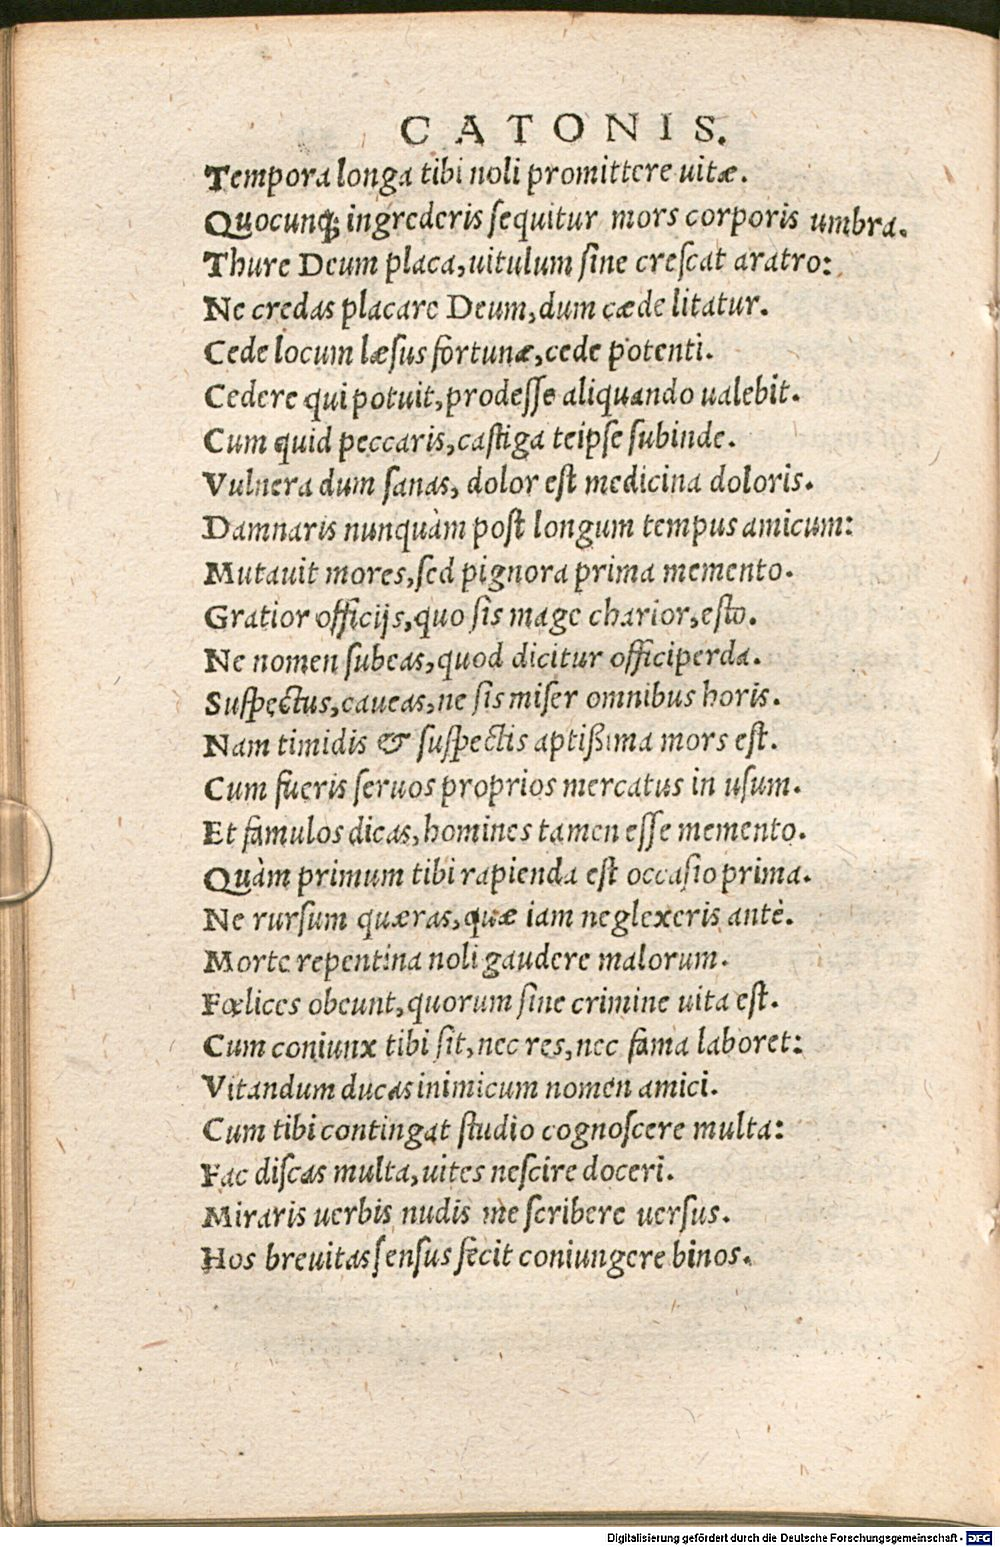 CATONIS.
Tempora longa tibi noli promittere uitæ.
Quocunq; ingrederis sequitur mors corporis umbra.
Thure Deum placa, uitulum sine crescat aratro:
Ne credas placare Deum, dum cæde litatur.
Cede locum læsus fortunæ, cede potenti.
Cedere qui potuit, prodesse aliquando ualebit.
Cum quid peccaris, castiga teipse subinde.
Vulnera dum sanas, dolor est medicina doloris.
Damnaris nunquàm post longum tempus amicum:
Mutauit mores, sed pignora prima memento.
Gratior officijs, quo sis mage charior, esto.
Ne nomen subeas, quod dicitur officiperda.
Suspectus, caueas, ne sis miser omnibus horis.
Nam timidis & suspectis aptißima mors est.
Cum fueris seruos proprios mercatus in usum.
Et famulos dicas, homines tamen esse memento.
Quàm primum tibi rapienda est occasio prima.
Ne rursum quæras, quæ iam neglexeris antè.
Morte repentina noli gaudere malorum.
Fœlices obeunt, quorum sine crimine uita est.
Cum coniunx tibi sit, nec res, nec fama laboret:
Vitandum ducas inimicum nomen amici.
Cum tibi contingat studio cognoscere multa:
Fac discas multa, uites nescire doceri.
Miraris uerbis nudis me scribere uersus.
Hos breuitas sensus fecit coniungere binos.
Digitalisierung gefördert durch die Deutsche Forschungsgemeinschaft - DFG